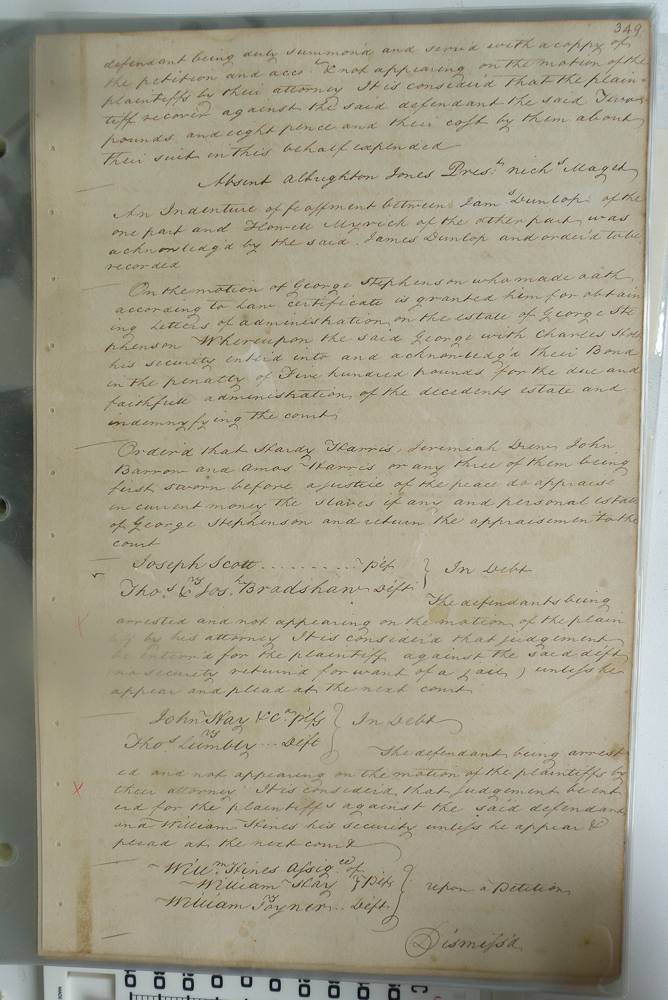 349
defendant being duly summon'd and serv'd with a coppy of
the petition and acco.t & not appearing on the motion of the
plaintiffs by their attorney It is consider'd that the plain-
tiff recover against the said defendant the said
pounds and eight pence and their cost by them about
their suit in this behalf expended
Absent Albrighton Jones Pres.t nich.s Maget
An Indenture of feoffment between Jam.s Dunlop of the
one part and Howell Myrick of the other part was
acknowledg'd by the said James Dunlop and order'd to be
recorded
On the motion of George Stephenson who made oath
according to Law certificate is granted him for obtain
ing Letters of administration on the estate of George Ste
phenson Whereupon the said George with Charles
his security enter'd into and acknowledg'd their Bond
in the penalty of Five hundred pounds for the due and
faithfull administration of the decedents estate and
indemnyfying the court
Order'd that Hardy Harris, Jeremiah Drew, John
Barrow and Amos Harris or any three of them being
first sworn before a justice of the peace do appraise
in current money the slaves if any and personal estate
of George Stephenson and return the appraisement to the
court
Joseph Scott .......... Plf } In Debt
vs
Tho.s & Jos.h Bradshaw Deft
The defendants being
arrested and not appearing on the motion of the plain
tiff by his attorney It is consider'd that judgement
be enter'd for the plaintiff against the said deft
no security return'd for want of a Jail) unless he
appear and plead at the next court
John Hay & C.o Plfs } In Debt
vs
Tho.s Lumbly ... Deft
The defendant being arrest
ed and not appearing on the motion of the plaintiffs by
their attorney It is consider'd that judgement be ent
er'd for the plaintiffs against the said defendant
and William Hines his security unless he appear &
plead at the next court
Will.m Hines Assig.ee of
William Hay } Plfs } upon a Petition
vs
William Joyner .. Deft
Dismiss'd